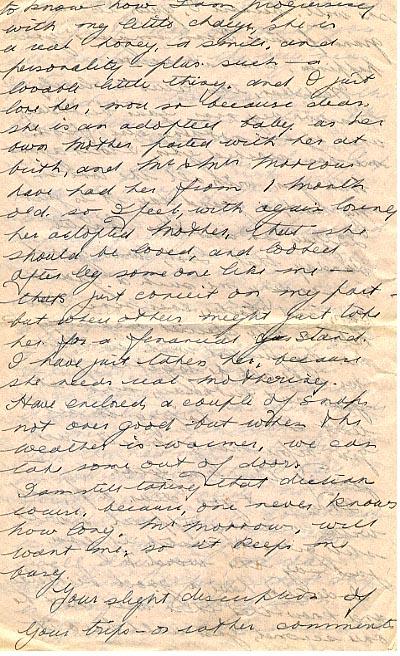 to know how I am progressing
with my little charge, she is
a real honey, a smile, and
personality plus. such a
lovable little thing. and I just
love her, more so because dear
she is an adopted baby as her
own mother parted with her at
birth, and Mr & Mrs Morrow
have had her from 1 month
old. so I feel, with again losing
her adopted mother, that she
should be loved, and looked
after by some one like me —
thats just conceit on my part -
but when others might just take
her for a financial stand.
I have just taken her, because
she needs real mothering.
Have enclosed a couple of snaps
not over good but when the
weather is warmer, we can
take some out of doors
I am still taking that dictation
course, because, one never knows
how long, Mr Morrow, will
want me, so it keeps me
busy
Your slight description of
your trips - or rather comments